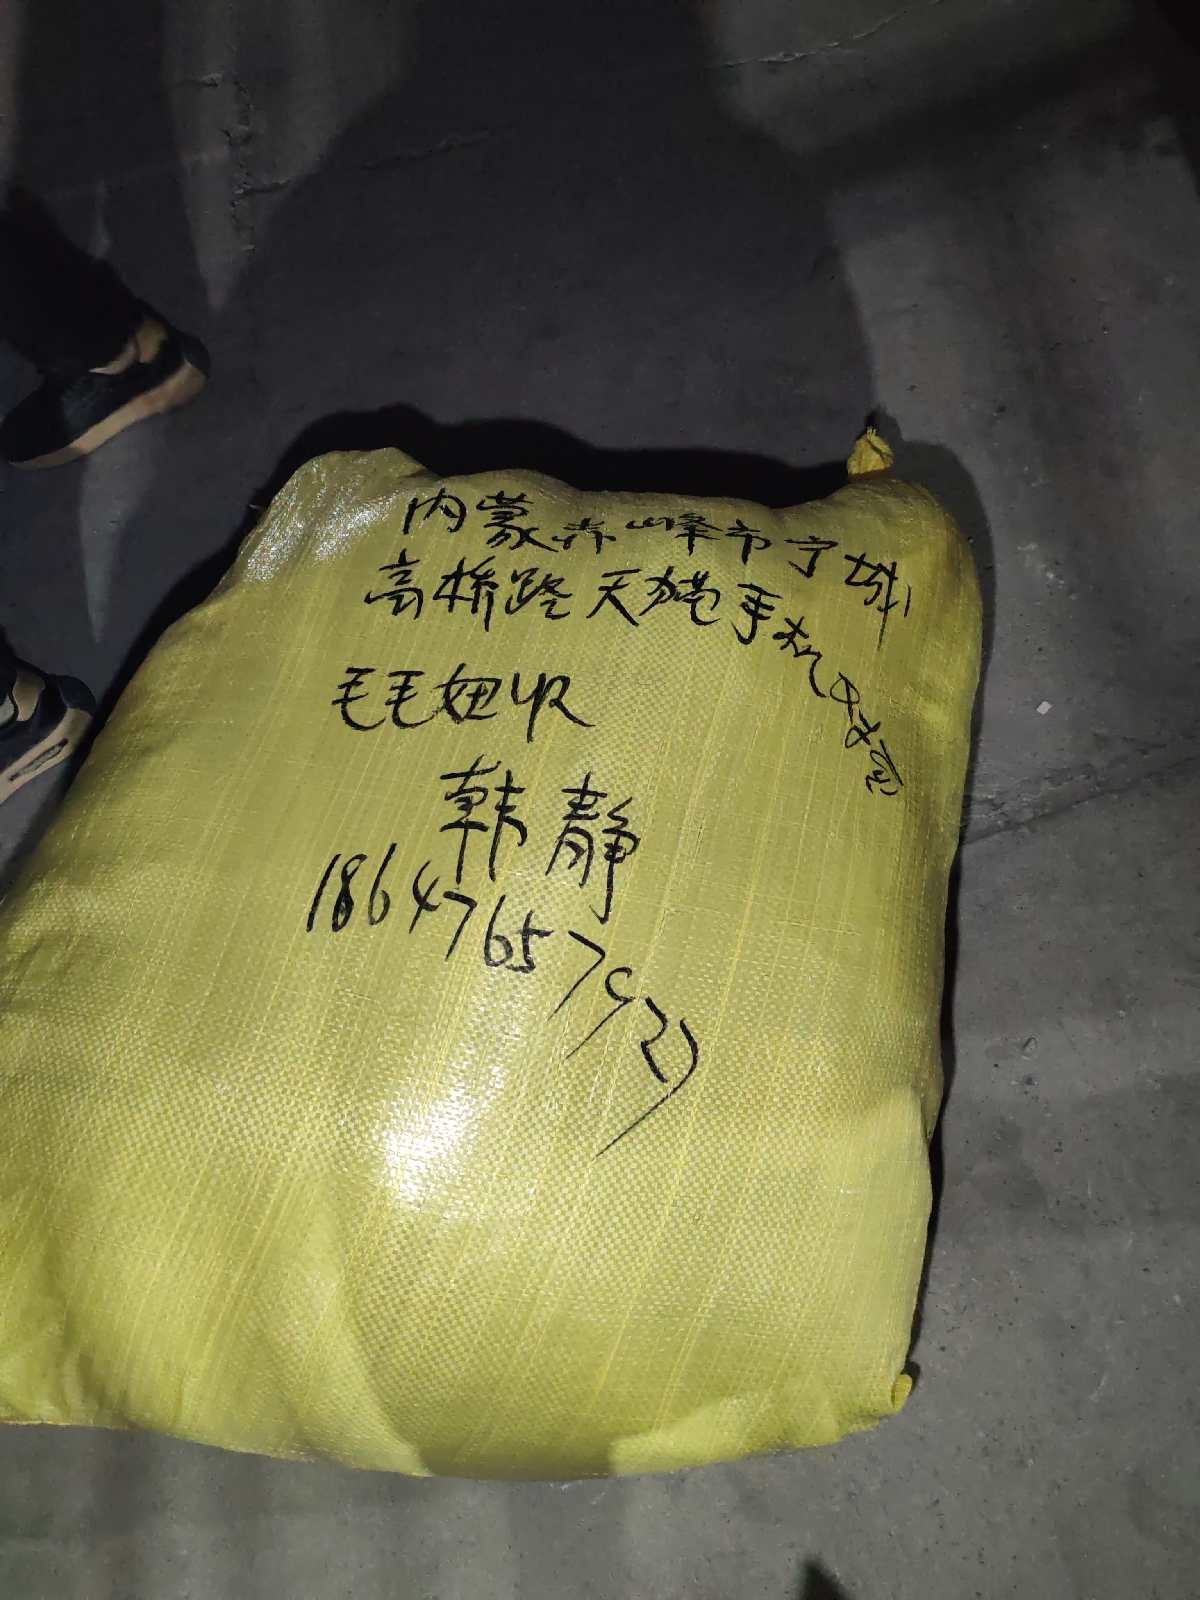 内蒙赤峰市宁城
高桥路天猫手机
毛毛妞收
韩静
18647657927